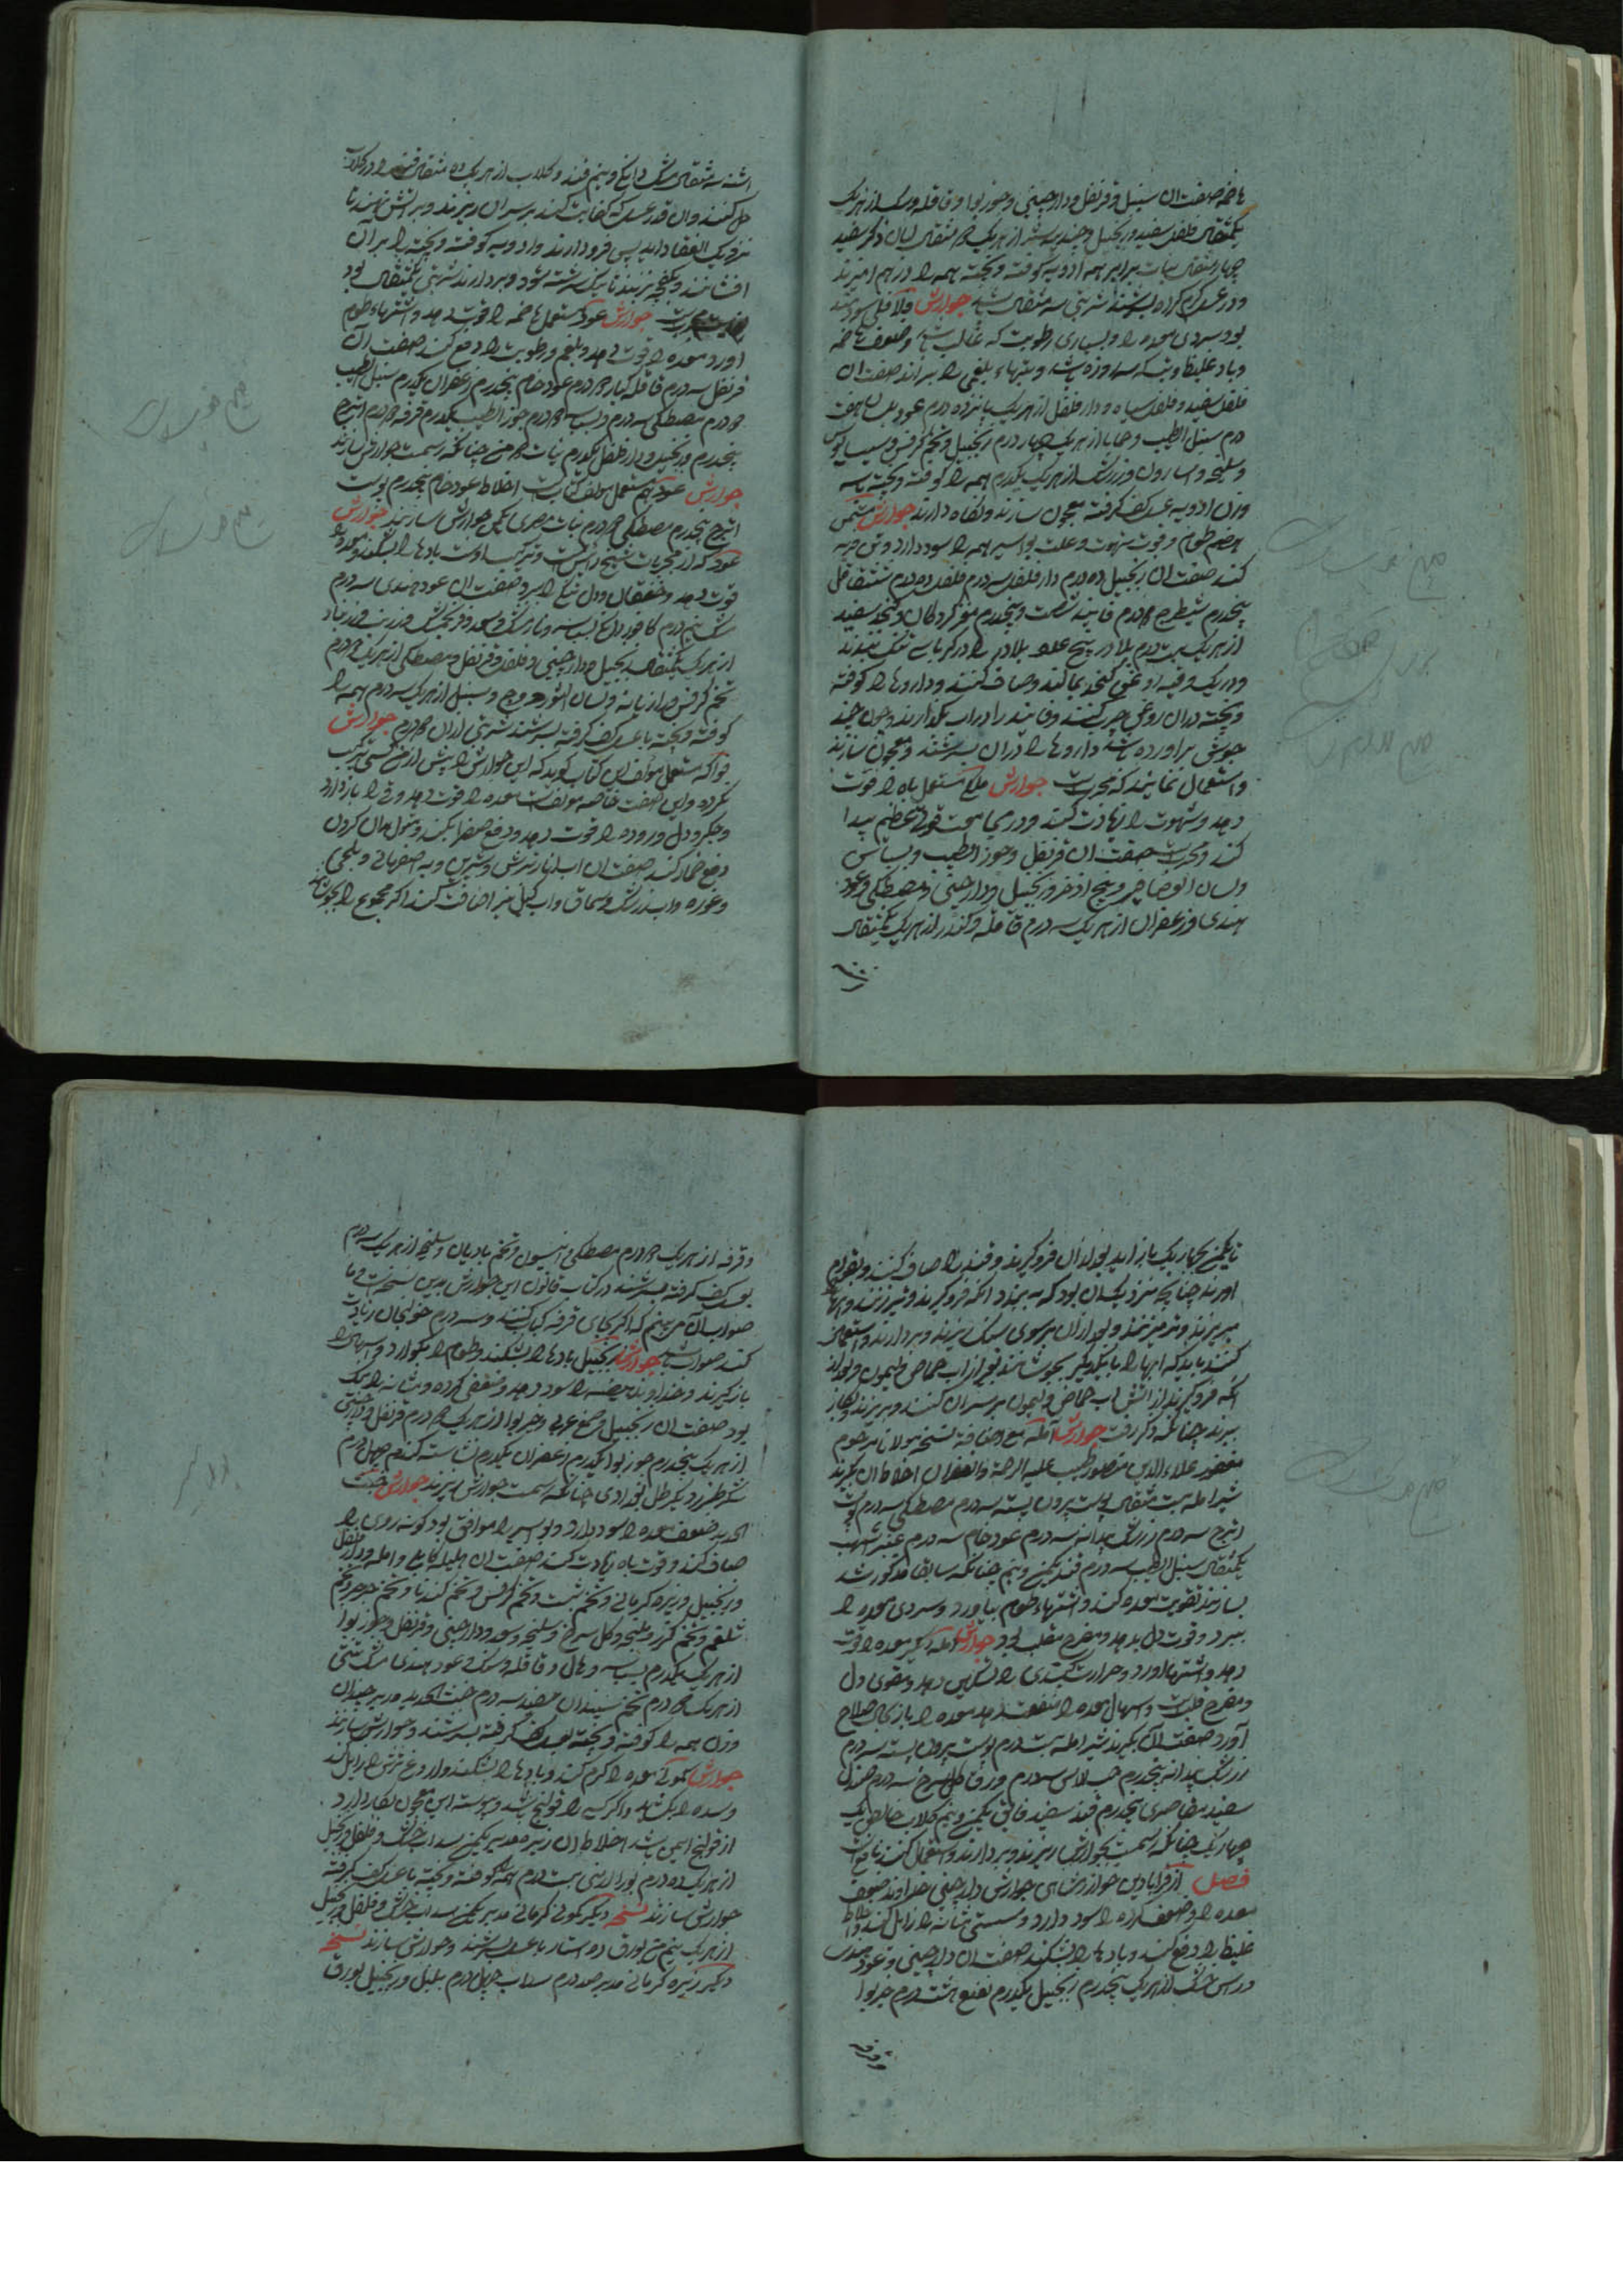 هاضمه صفت آن سنبل و قرنفل و دارچینی و جوزبوا و قاقله و مشک از هر یک
یکمثقال فلفل سفید و زنجبیل و جندبیدستر از هر یک ۲ مثقال لبان ذکر سفید
چهار مثقال نبات برابر همه ادویه کوفته و بیخته همه را درهم آمیزند
و در عسل کرم کرده بسرشند شربتی سه مثقال باشد جوارش فلافلی سودمند
بود سردی معده را و بسیاری رطوبت که غالب باشد و ضعف هاضمه
و باد غلیظ و تب که سه روزه باشد و تبهاء بلغمی را ببراند صفت آن
فلفل سفید و فلفل سیاه و دارفلفل از هر یک پانزده درم عود بلسان هفت
درم سنبل الطیب و حماما از هر یک چهار درم زنجبیل و تخم کرفس و سیسالیوس
و سلیخه و اسارون و زرشک از هر یک یکدرم همه را کوفته و بیخته با سه
وزن ادویه عسل کف کرفته معجون سازند و نکاه دارند جوارش شمس
هضم طعام و قوت شهوت و علت بواسیر همه را سود دارد و تن فربه
کند صفت آن زنجبیل ده درم دارفلفل سه درم فلفل ده درم شقاقل
پنجدرم شیطرج ۲ درم فانید شصت و پنجدرم مغز کردکان و کنجد سفید
از هر یک بیست درم بلادر پنج عدد بلادر را در کرباس تنک بندند
و در یک وقیه روغن کنجد بمالند و صاف کنند و داروها را کوفته
و بیخته در آن روغن چرب کنند و فانید را در آب بکدازند و چون چند
جوش برآورده باشد داروها را در آن بسرشند و معجون سازند
و استعمال نمایند که مجربست جوارش ملکی مستعمل باه را قوت
دهد و شهوت را زیادت کند و در مجامعت قوتی عظیم پیدا
کند و مجربست صفت آن قرنفل و جوز الطیب و بسباس
و لسان العصافیر و بیخ اذخر و زنجبیل و دارچینی و مصطکی و عود
هندی و زعفران از هر یک سه درم قاقله و کندر از هر یک یکمثقال
اشنه سه مثقال مشک دانکی و نیم قند و کلاب از هر یک ده مثقال قند را در کلاب
حل کنند و آن قدر عسل که کفایت کند بر سر آن ریزند و بر آتش نهند تا
نزدیک انعقاد آید پس فرود آرند و ادویه کوفته و بیخته را بر آن
افشانند و بکفچه بزنند تا نیک سرشته شود و بردارند شربتی یکمثقال بود
جوارش عود مستعمل هاضمه را قوت دهد و اشتهاء طعام
آورد و معده را قوت دهد و بلغم و رطوبت را دفع کند صفت آن
قرنفل سه درم قاقله کبار ۲ درم عود خام پنجدرم زعفران یکدرم سنبل الطیب
۲ درم مصطکی سه درم و بسباسه ۲ درم جوز الطیب یکدرم قرفه ۲ درم اترج
پنجدرم زنجبیل و دارفلفل یکدرم نبات ۲ من چنانکه رسمست جوارش سازند
جوارش عود هم مستعمل مولف کتابست اخلاط عود خام پنجدرم پوست
اترج پنجدرم مصطکی ۲ درم نبات مصری یکمن جوارش سازند جوارش
عود که از مجربات شیخ رئیس است و ترکیب اوست بادها را بشکند و معده را
قوت دهد و خفقان و دل تنکی را ببرد صفت آن عود هندی سه درم
مشک نیم درم کافور دانکی بسباسه و نارمشک و سعد و فرنجمشک و زرنب و زرنباد
از هر یک یکمثقال زنجبیل و دارچینی و فلفل و قرنفل و مصطکی از هر یک ۲ درم
تخم کرفس و رازیانه و لسان الثور و وج و سنبل از هر یک سه درم همه را
کوفته و بیخته با عسل کف کرفته بسرشند شربتی از آن ۲ درم جوارش
فواکه مستعمل مولف این کتاب کوید که این جوارش را پیش ازین کسی ترکیب
نکرده و این صفت خاصه مولفست معده را قوت دهد و قی را باز دارد
و جکر و دل و روده را قوت دهد و دفع صفرا بکند و
دفع خمار کند صفت آن آب انار ترش و شیرین و به اصفهانی و بلخی
و غوره و آب زرشک و سماق و آب کیل نیز اضافت کنند اکر مجموع را بجوشانند
تا یکمن بچهار یک باز آید بعد از آن فروکیرند و قند را صاف کنند و بقوام
آورند چنانچه نزدیک آن بود که ببندد آنکه فروکیرند و تبرزنند و آبها
میریزند و تبر میزنند و بعد از آن بر سوی سنک ریزند و بردارند و استعمال
کنند باید که آبها را با یکدیکر بجوشانند بغیر از آب حماض و لیمون و بعد از
آنکه فروکیرند از آتش آب حماض و لیمون بر سر آن کنند و بریزند و بکار
برند چنانکه ذکر رفت جوارش آمله مع اضافه نسخه مولانا مرحوم
مغفور علاء الدین منصور طبیب علیه الرحمة والغفران اخلاط آن بکیرند
شیر آمله بیست مثقال پوست بیرون پسته سه درم مصطکی سه درم پوست
اترج سه درم زرشک بیدانه سه درم عود خام سه درم عنبر اشهب
یکمثقال سنبل الطیب سه درم قند یکمن و نیم چنانکه سابقا مذکور شد
بسازند تقویت معده کند و اشتهاء طعام بیاورد و سردی معده را
ببرد و قوت دل بدهد و مفرح قلب بود جوارش آمله دیکر معده را قوت
دهد و اشتها آورد و حرارت کبدی را تسکین دهد و مقوی دل
و مفرح قلبست و اسهال معده را منفعت دهد معده را باز بحال صلاح
آورد صفت آن بکیرند شیر آمله بیست درم پوست بیرون پسته سه درم
زرشک بیدانه پنجدرم حب الاس سه درم ورق کل سرخ سه درم صندل
سفید مقاصری پنجدرم قند سفید فایق یکمن و نیم کلاب خالص یک
چهاریک چنانکه رسمست بجوارش بریزند و بردارند و استعمال کنند نافع است
فصل از قرابادین جوارشهای جوارش دارچینی خداوند ضعف
معده را و ضعف کرده را سود دارد و سستی مثانه را زایل کند و اخلاط
غلیظ را دفع کند و بادها را بشکند صفت آن دارچینی و عود هندی
و راس خشک از هر یک پنجدرم زنجبیل یکدرم نعنع هشت درم خیربوا
و قرفه از هر یک ۲ درم مصطکی و انیسون و تخم بادیان و سلیخه از هر یک سه درم
بعسل کف کرفته بسرشند در کتاب قانون این جوارش بدین نسخت است و ما
صواب آن می بینم که اکر بجای قرفه کبابه کنند و سه درم خولنجان زیادت
کنند صواب باشد جوارش زنجبیل بادها را بشکند و طعام را بکوارد و اسهال را
باز کیرند و خداوند هیضه را سود دهد و ضعف کرده و مثانه را نیک
بود صفت آن زنجبیل و صمغ عربی و خیربوا از هر یک ۲ درم قرنفل و دارچینی
از هر یک پنجدرم جوزبوا یکدرم زعفران یکدرم نشاسته کندم چهل درم
شکر طبرزد یکرطل بغدادی چنانکه رسمست جوارش بپزند جوارش خبث
الحدید ضعف معده را سود دارد و بواسیر را موافق بود و کونه روی را
صاف کند و قوت باه زیادت کند صفت آن هلیله کابلی و آمله و دارفلفل
و زنجبیل و زیره کرمانی و تخم شبت و تخم کرفس و تخم کندنا و تخم جرجیر و تخم
شلغم و تخم کزر و سلیخه و کل سرخ و سعد و دارچینی و قرنفل و جوزبوا
از هر یک یکدرم بسباسه و هال و قاقله و مشک و عود هندی
از هر یک ۲ درم تخم سپندان سفید سه درم خبث الحدید مدبر چندان
وزن همه را کوفته و بیخته بعسل کف کرفته بسرشند و جوارش سازند
جوارش کمونی معده را کرم کند و بادها را بشکند و آروغ ترش را زایل کند
و سده را بکشاید و اکر کسی را قولنج باشد و پیوسته این معجون بکار دارد
از قولنج ایمن باشد اخلاط آن زیره مدبر یکمن سداب خشک و فلفل و زنجبیل
از هر یک ده درم بوره ارمنی بیست درم همه کوفته و بیخته با عسل کف کرفته
جوارش سازند نسخه دیکر کمونی کرمانی مدبر یکمن سداب خشک و فلفل و زنجبیل
از هر یک نیم من بورق ده استار با عسل بسرشند و جوارش سازند نسخه
دیکر زیره کرمانی مدبر صد درم سداب چهل درم فلفل و زنجبیل بورق